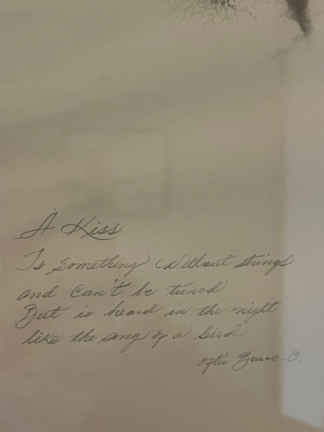 A Kiss
Is something without strings
and can't be tuned
But is heard in the night
like the song of a bird
Bruce O.